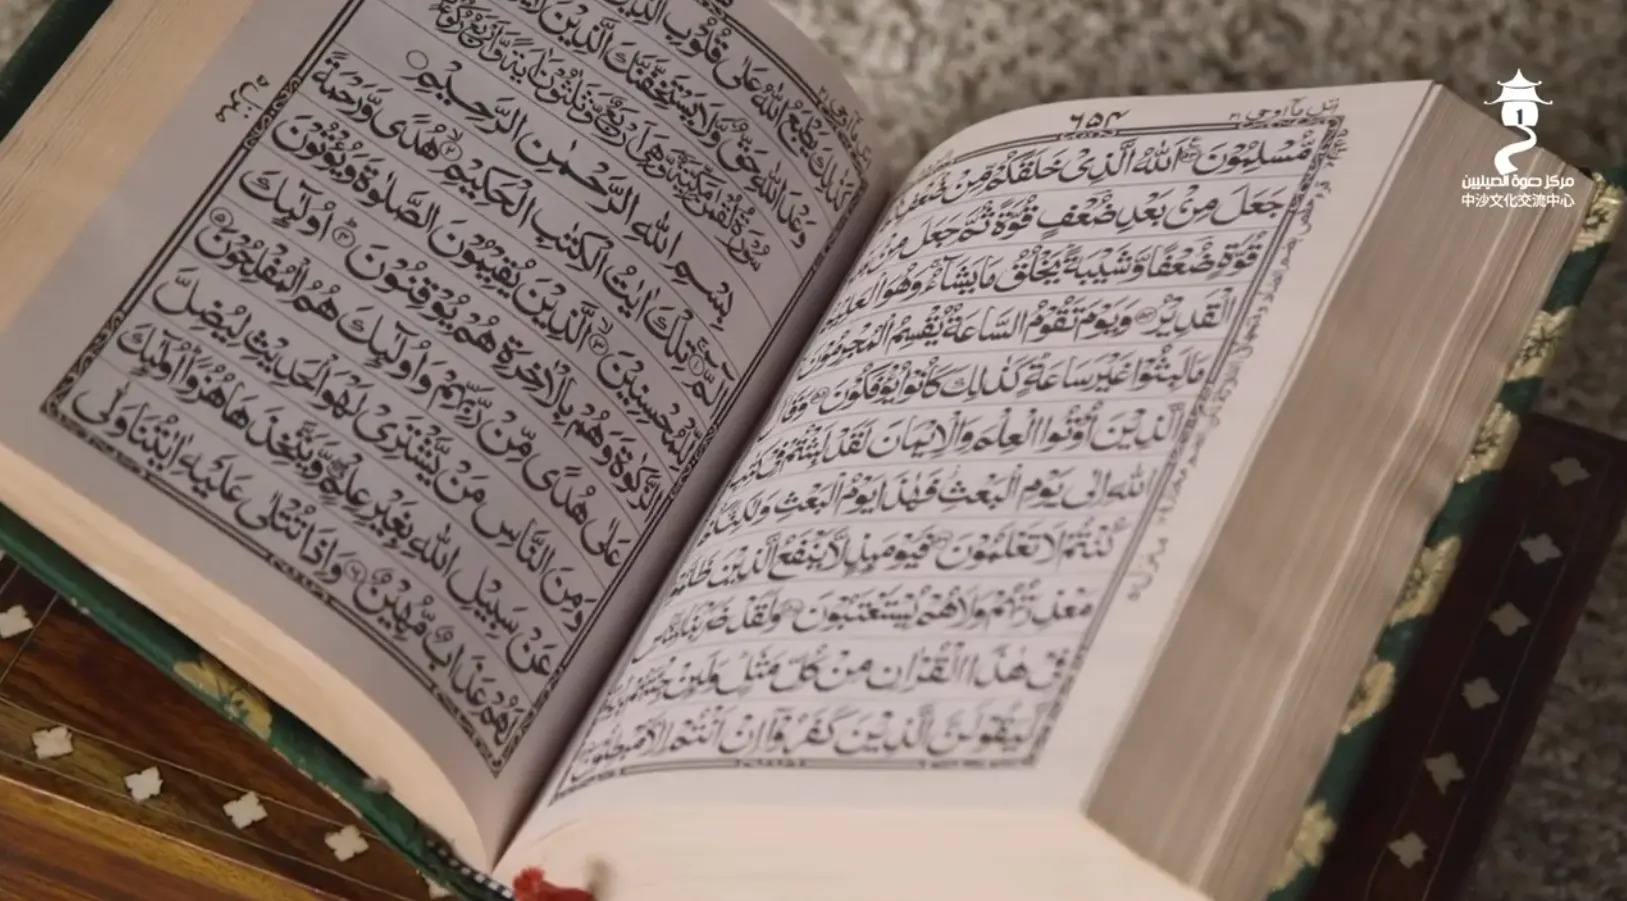 ٦٥٤
اتل مآ اوحی ٢١
مُّسْلِمُوْنَ اَللّٰهُ الَّذِیْ خَلَقَكُمْ مِّنْ ضُعْفٍ
جَعَلَ مِنْۢ بَعْدِ ضُعْفٍ قُوَّةً ثُمَّ جَعَلَ مِنْۢ
قُوَّةٍ ضُعْفًا وَّشَیْبَةً یَخْلُقُ مَا یَشَآءُ وَهُوَ الْعَلِیْمُ
الْقَدِیْرُ وَیَوْمَ تَقُوْمُ السَّاعَةُ یُقْسِمُ الْمُجْرِمُوْنَ
مَا لَبِثُوْا غَیْرَ سَاعَةٍ كَذٰلِكَ كَانُوْا یُؤْفَكُوْنَ وَقَالَ
الَّذِیْنَ اُوْتُوا الْعِلْمَ وَالْاِیْمَانَ لَقَدْ لَبِثْتُمْ فِیْ كِتٰبِ
اللّٰهِ اِلٰی یَوْمِ الْبَعْثِ فَهٰذَا یَوْمُ الْبَعْثِ وَلٰكِنَّكُمْ
كُنْتُمْ لَا تَعْلَمُوْنَ فَیَوْمَىِٕذٍ لَّا یَنْفَعُ الَّذِیْنَ ظَلَمُوْا
مَعْذِرَتُهُمْ وَلَا هُمْ یُسْتَعْتَبُوْنَ وَلَقَدْ ضَرَبْنَا لِلنَّاسِ
فِیْ هٰذَا الْقُرْاٰنِ مِنْ كُلِّ مَثَلٍ وَلَىِٕنْ جِئْتَهُمْ
لَّیَقُوْلَنَّ الَّذِیْنَ كَفَرُوْۤا اِنْ اَنْتُمْ اِلَّا مُبْطِلُوْنَ
كَذٰلِكَ یَطْبَعُ اللّٰهُ عَلٰی قُلُوْبِ الَّذِیْنَ
وَعْدَ اللّٰهِ حَقٌّ وَّلَا یَسْتَخِفَّنَّكَ الَّذِیْنَ
سُوْرَةُ لُقْمٰنَ مَكِّیَّةٌ وَّهِیَ اَرْبَعٌ وَّثَلٰثُوْنَ اٰیَةً وَّاَرْبَعُ رُكُوْعٍ
بِسْمِ اللّٰهِ الرَّحْمٰنِ الرَّحِیْمِ
الٓمّٓ ۱ تِلْكَ اٰیٰتُ الْكِتٰبِ الْحَكِیْمِ ۲ هُدًی وَّرَحْمَةً
لِّلْمُحْسِنِیْنَ ۳ الَّذِیْنَ یُقِیْمُوْنَ الصَّلٰوةَ وَیُؤْتُوْنَ
الزَّكٰوةَ وَهُمْ بِالْاٰخِرَةِ هُمْ یُوْقِنُوْنَ ۴ اُولٰٓىِٕكَ
عَلٰی هُدًی مِّنْ رَّبِّهِمْ وَاُولٰٓىِٕكَ هُمُ الْمُفْلِحُوْنَ ۵
وَمِنَ النَّاسِ مَنْ یَّشْتَرِیْ لَهْوَ الْحَدِیْثِ لِیُضِلَّ
عَنْ سَبِیْلِ اللّٰهِ بِغَیْرِ عِلْمٍ وَّیَتَّخِذَهَا هُزُوًا اُولٰٓىِٕكَ
لَهُمْ عَذَابٌ مُّهِیْنٌ ۶ وَاِذَا تُتْلٰی عَلَیْهِ اٰیٰتُنَا وَلّٰی
منزل ۵
مركز صوة الصينيين
中沙文化交流中心